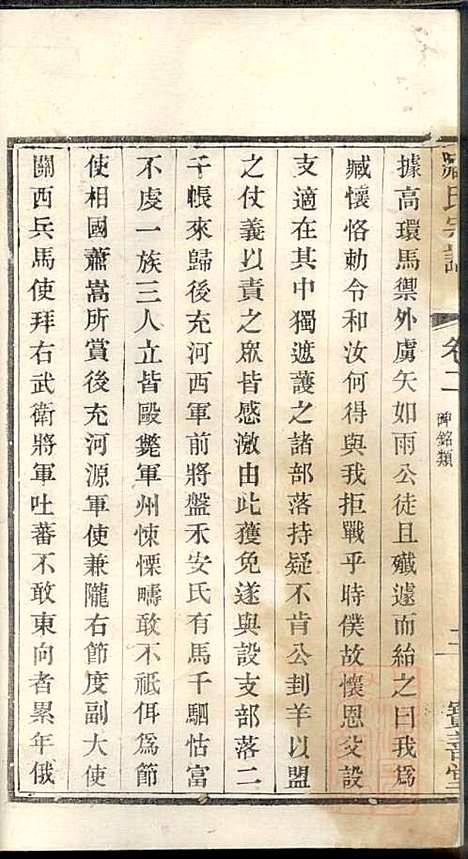 據高環馬禦外虜矢如雨公徒且殲遽而紿之曰我為
臧懷恪勅令和汝何得與我拒戰乎時僕故懷恩父設
支適在其中獨遮護之諸部落持疑不肯公刲羊以盟
之仗義以責之眾皆感激由此獲免遂與設支部落二
千帳來歸後充河西軍前將盤禾安氏有馬千駟怙富
不虔一族三人立皆毆斃軍州悚慄疇敢不祗俾為節
使相國蕭嵩所賞後充河源軍使兼隴右節度副大使
關西兵馬使拜右武衛將軍吐蕃不敢東向者累年俄
氏宗譜
卷二
碑銘類
二